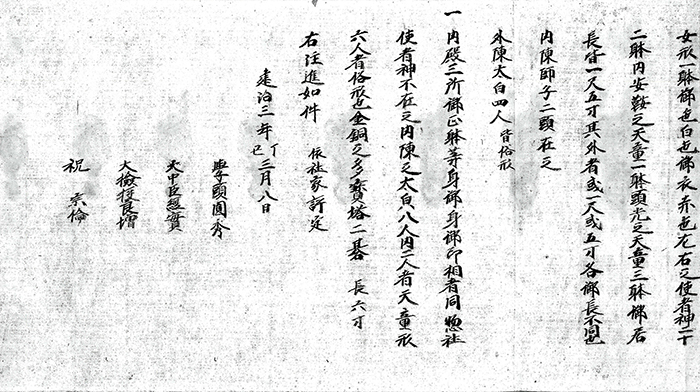 女形一躰御色白也御衣赤色左右之使者神二十
二躰内安鞍之天童一躰頭光之天童三躰御居
長皆一尺五寸其外者或一尺或五寸各御長不同也
内陳師子二頭在之
外陳太白四人皆俗形
一 内殿三所御正躰等身御身御印相者同惣社
使者神不在之内陳之太白八人内二人者天童形
六人者俗形也金銅之多寳塔二基 長六寸
右注進如件 依社家評定
建治三年丁丑三月八日
學頭圓秀
大中臣經實
大檢挍良増
祝 宗倫